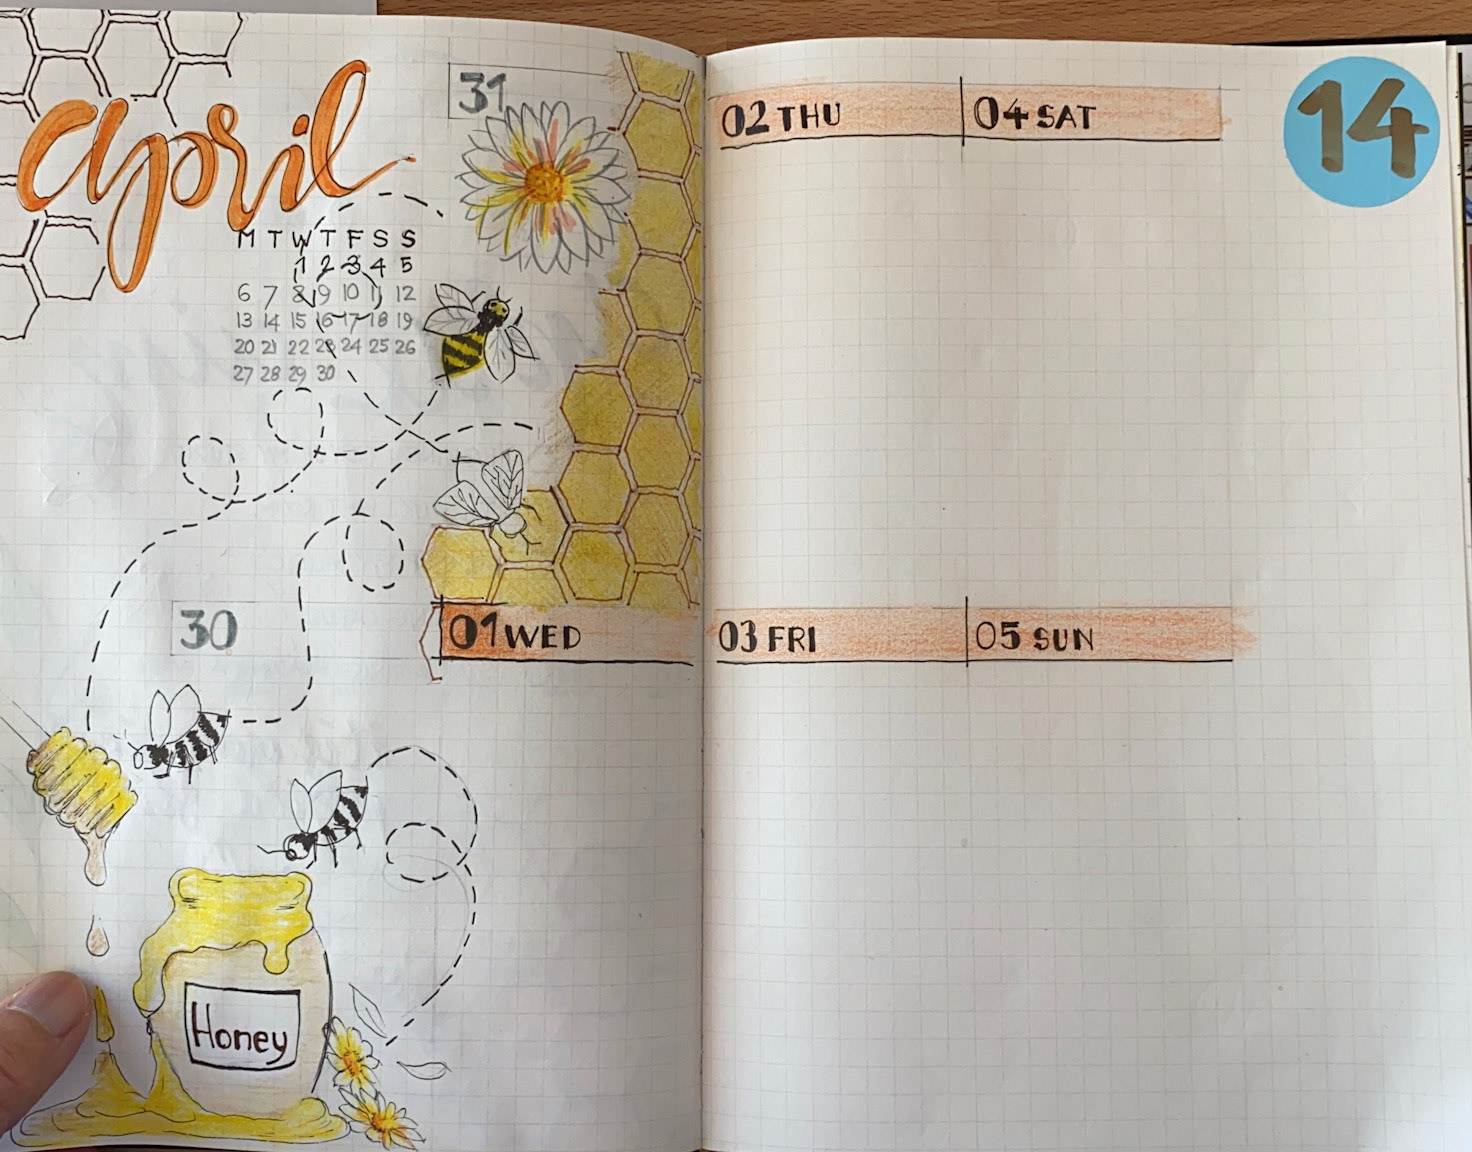 april
M T W T F S S
1 2 3 4 5
6 7 8 9 10 11 12
13 14 15 16 17 18 19
20 21 22 23 24 25 26
27 28 29 30
31
30
01 WED
Honey
02 THU
04 SAT
14
03 FRI
05 SUN